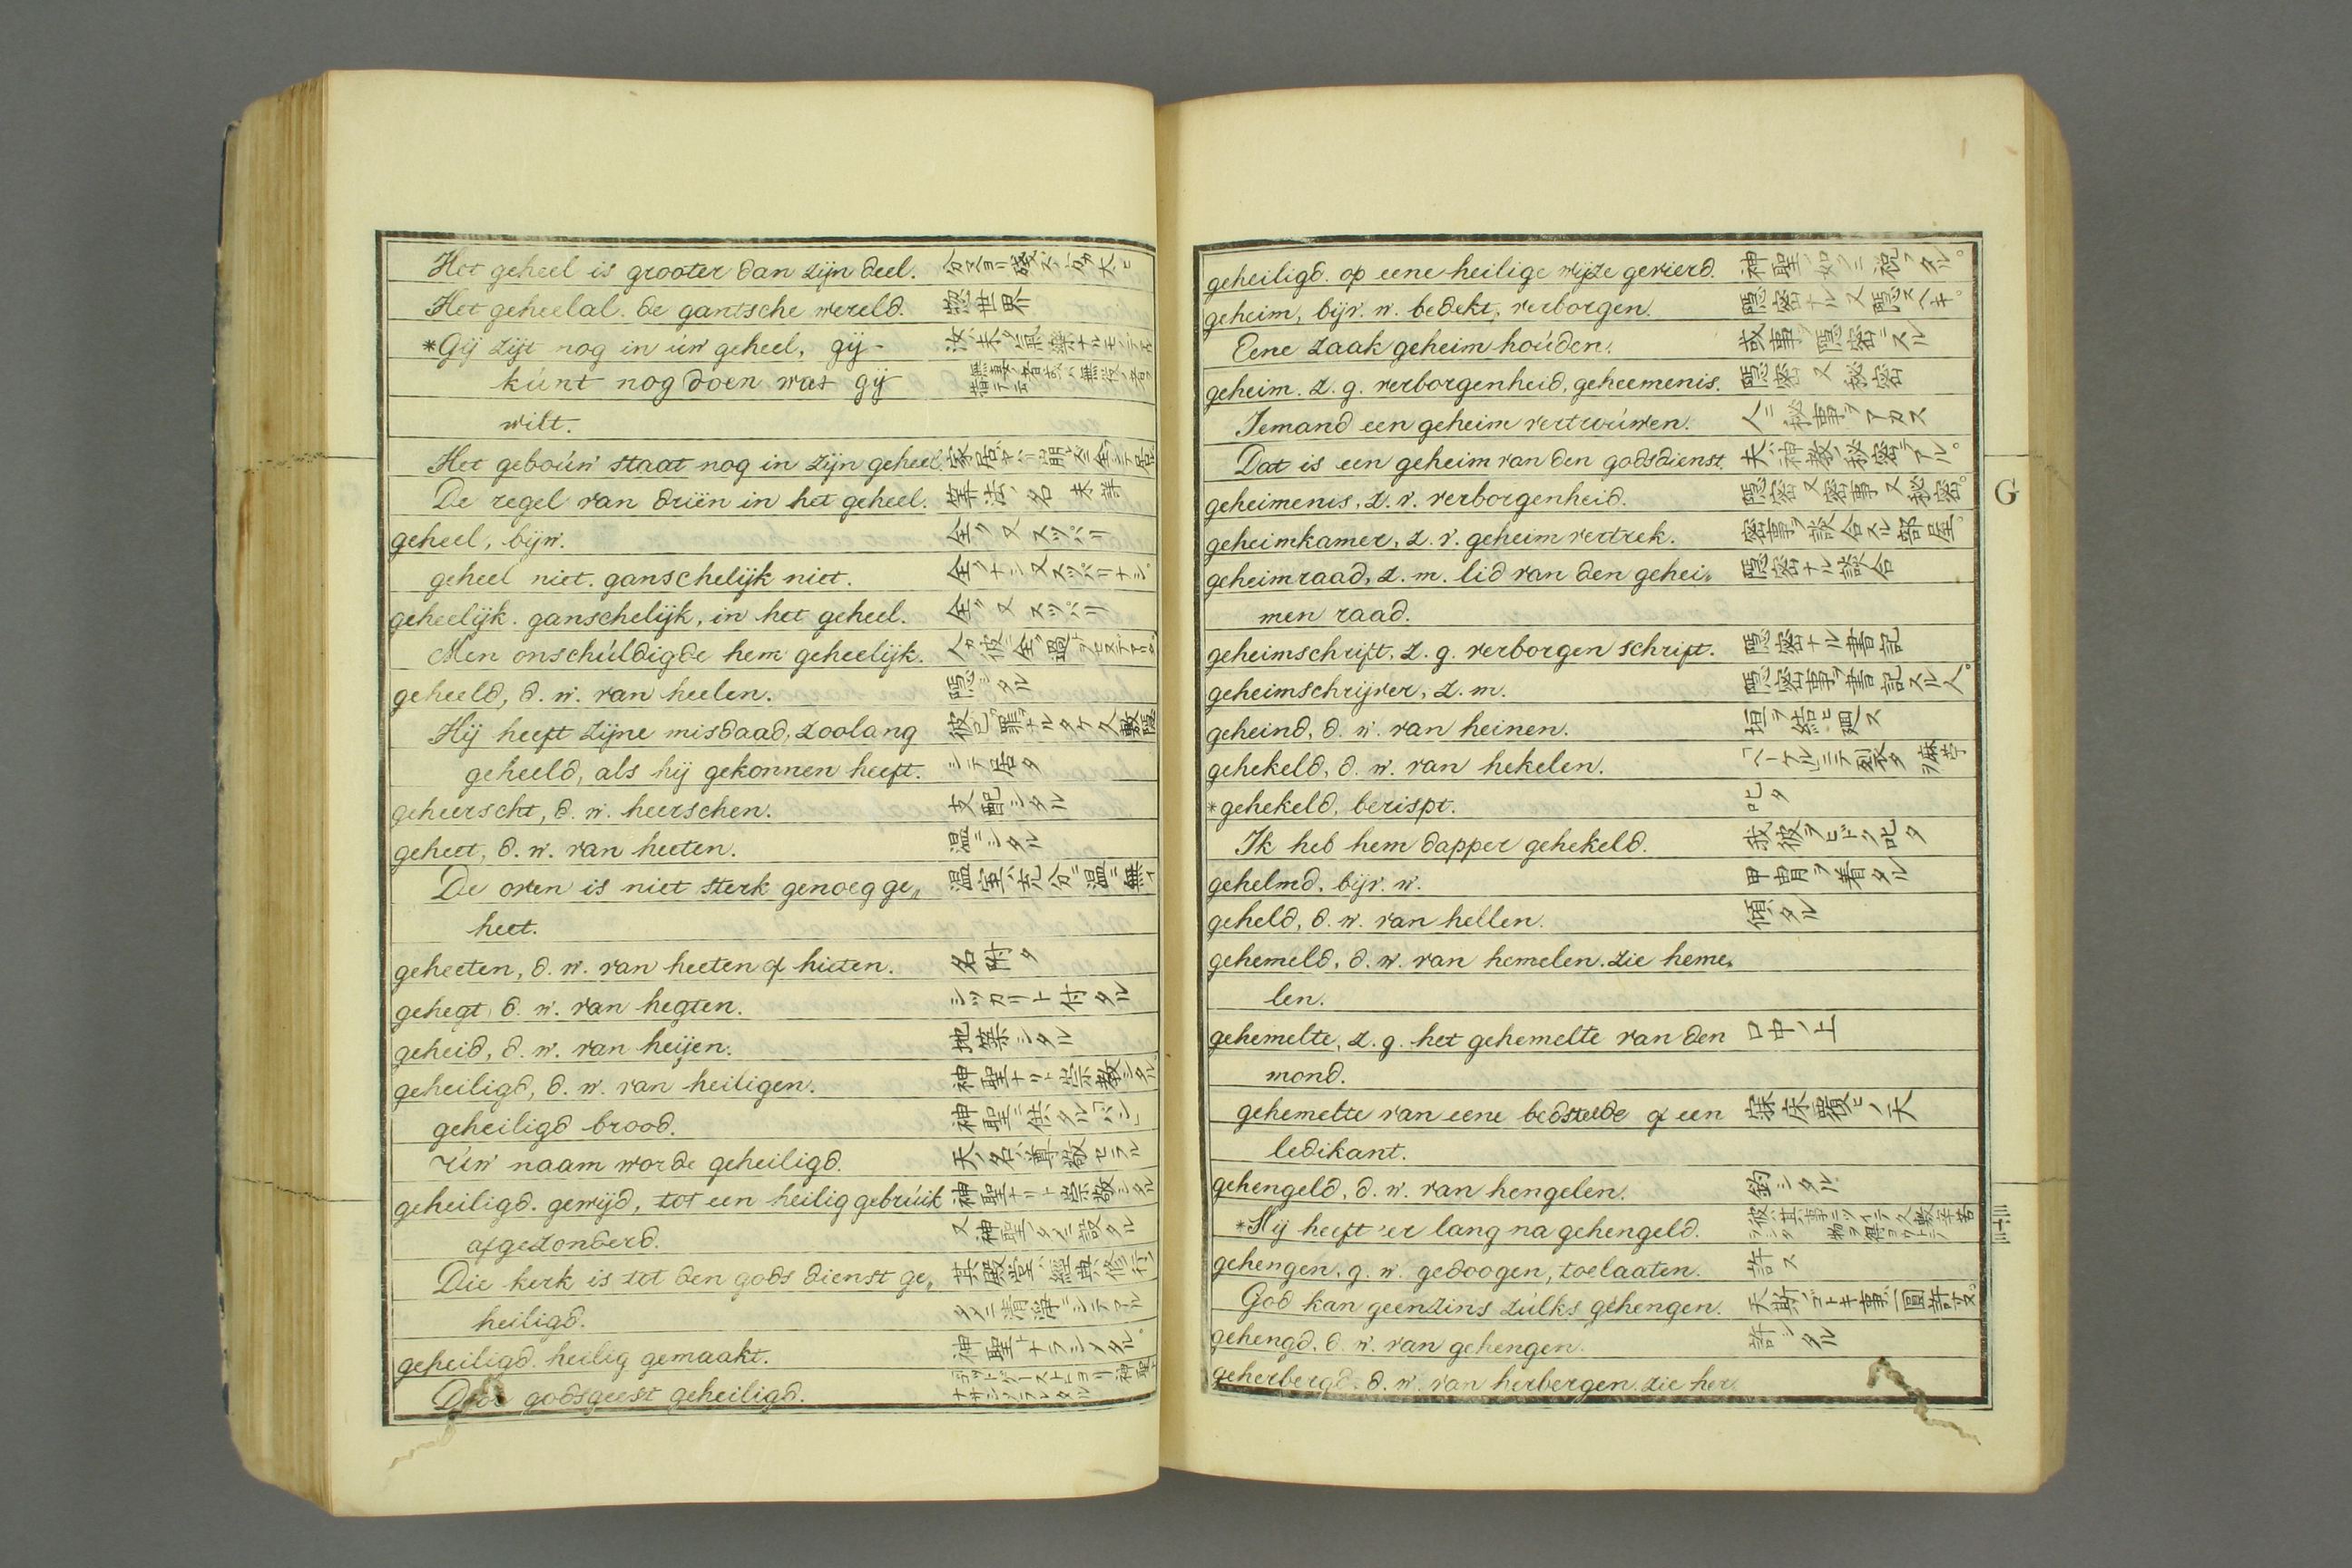 Het geheel is grooter dan zijn deel.
Het geheelal. de gantsche wereld. 惣世界
*Gij zijt nog in úw geheel, gij-
kúnt nog doen was gij
wilt.
Het geboúw staat nog in zijn geheel.
De regel van driën in het geheel. 算法ノ名 未詳
geheel, bijw. 全ク又スッパリ
geheel niet. ganschelijk niet. 全クナシ又スッパリナシ
geheelijk. ganschelijk, in het geheel. 全ク又スッパリ
Men onschúldigde hem geheelijk.
geheeld, d. w. van heelen. 隠シタル
Hij heeft zijne misdaad, zoolang
geheeld, als hij gekonnen heeft. シテ居タ
geheerscht, d. w. heerschen. 支配シタル
geheet, d. w. van heeten. 温ニシタル
De oven is niet sterk genoeg ge„ 温室ハ充分ニ温ニ無イ
heet.
geheeten, d. w. van heeten of hieten. 名附タ
gehegt, d. w. van hegten. シッカリト付タル
geheid, d. w. van heijen. 地築シタル
geheiligd, d. w. van heiligen. 神聖ナリト崇敬シタル
geheiligd brood. 神聖ニ供タル「パン」
Úw naam worde geheiligd. 天ノ名ハ尊敬セラル
geheiligd. gewijd, tot een heilig gebrúik 神聖ナリト崇敬シタル
afgezonderd. 又神聖ノタメニ設タル
Die kerk is tot den gods dienst ge„ 其殿堂ハ經典修行ノ
heiligd. タメニ清浄ニシテアル
geheiligd. heilig gemaakt. 神聖トナラシメタル。
Door godsgeest geheiligd.
geheiligd. op eene heilige wijze gevierd. 神聖ノ如クニ祝フタル。
geheim, bijv. w. bedekt, verborgen. 隠密ナル又隠スベキ。
Eene zaak geheim hoúden. 或事ヲ隠密ニスル
geheim. z. g. verborgenheid, geheemenis. 隠密 又 秘密
Iemand een geheim vertroúwen. 人ニ秘事ヲアカス
Dat is een geheim van den godsdienst. 夫ハ神教ノ秘密デアル。
geheimenis, z. v. verborgenheid. 隠密 又 密事 又 秘密。
G
geheimkamer, z. v. geheim vertrek. 密事ヲ談合スル部屋。
geheimraad, z. m. lid van den gehei„ 隠密ナル談合
men raad.
geheimschrift, z. g. verborgen schrift. 隠密ナル書記
geheimschrijver, z. m. 隠密事ヲ書記スル人。
geheind, d. w. van heinen. 垣ヲ結ヒ廻ス
gehekeld, d. w. van hekelen.
*gehekeld, berispt. 叱タ
Ik heb hem dapper gehekeld. 我彼ヲヒドク叱タ
gehelmd, bijv. w. 甲冑ヲ着タル
geheld, d. w. van hellen. 傾タル
gehemeld, d. w. van hemelen. zie heme„
len.
gehemelte, z. g. het gehemelte van den 口中ノ上
mond.
gehemelte van eene bedstede of een 寐床ノ覆ヒノ天
ledikant.
gehengeld, d. w. van hengelen. 釣シタル
*Hij heeft 'er lang na gehengeld.
gehengen, g. w. gedoogen, toelaaten. 許ス
God kan geenzins zúlks gehengen.
gehengd, d. w. van gehengen. 許シタル
geherbergd. d. w. van herbergen. zie her